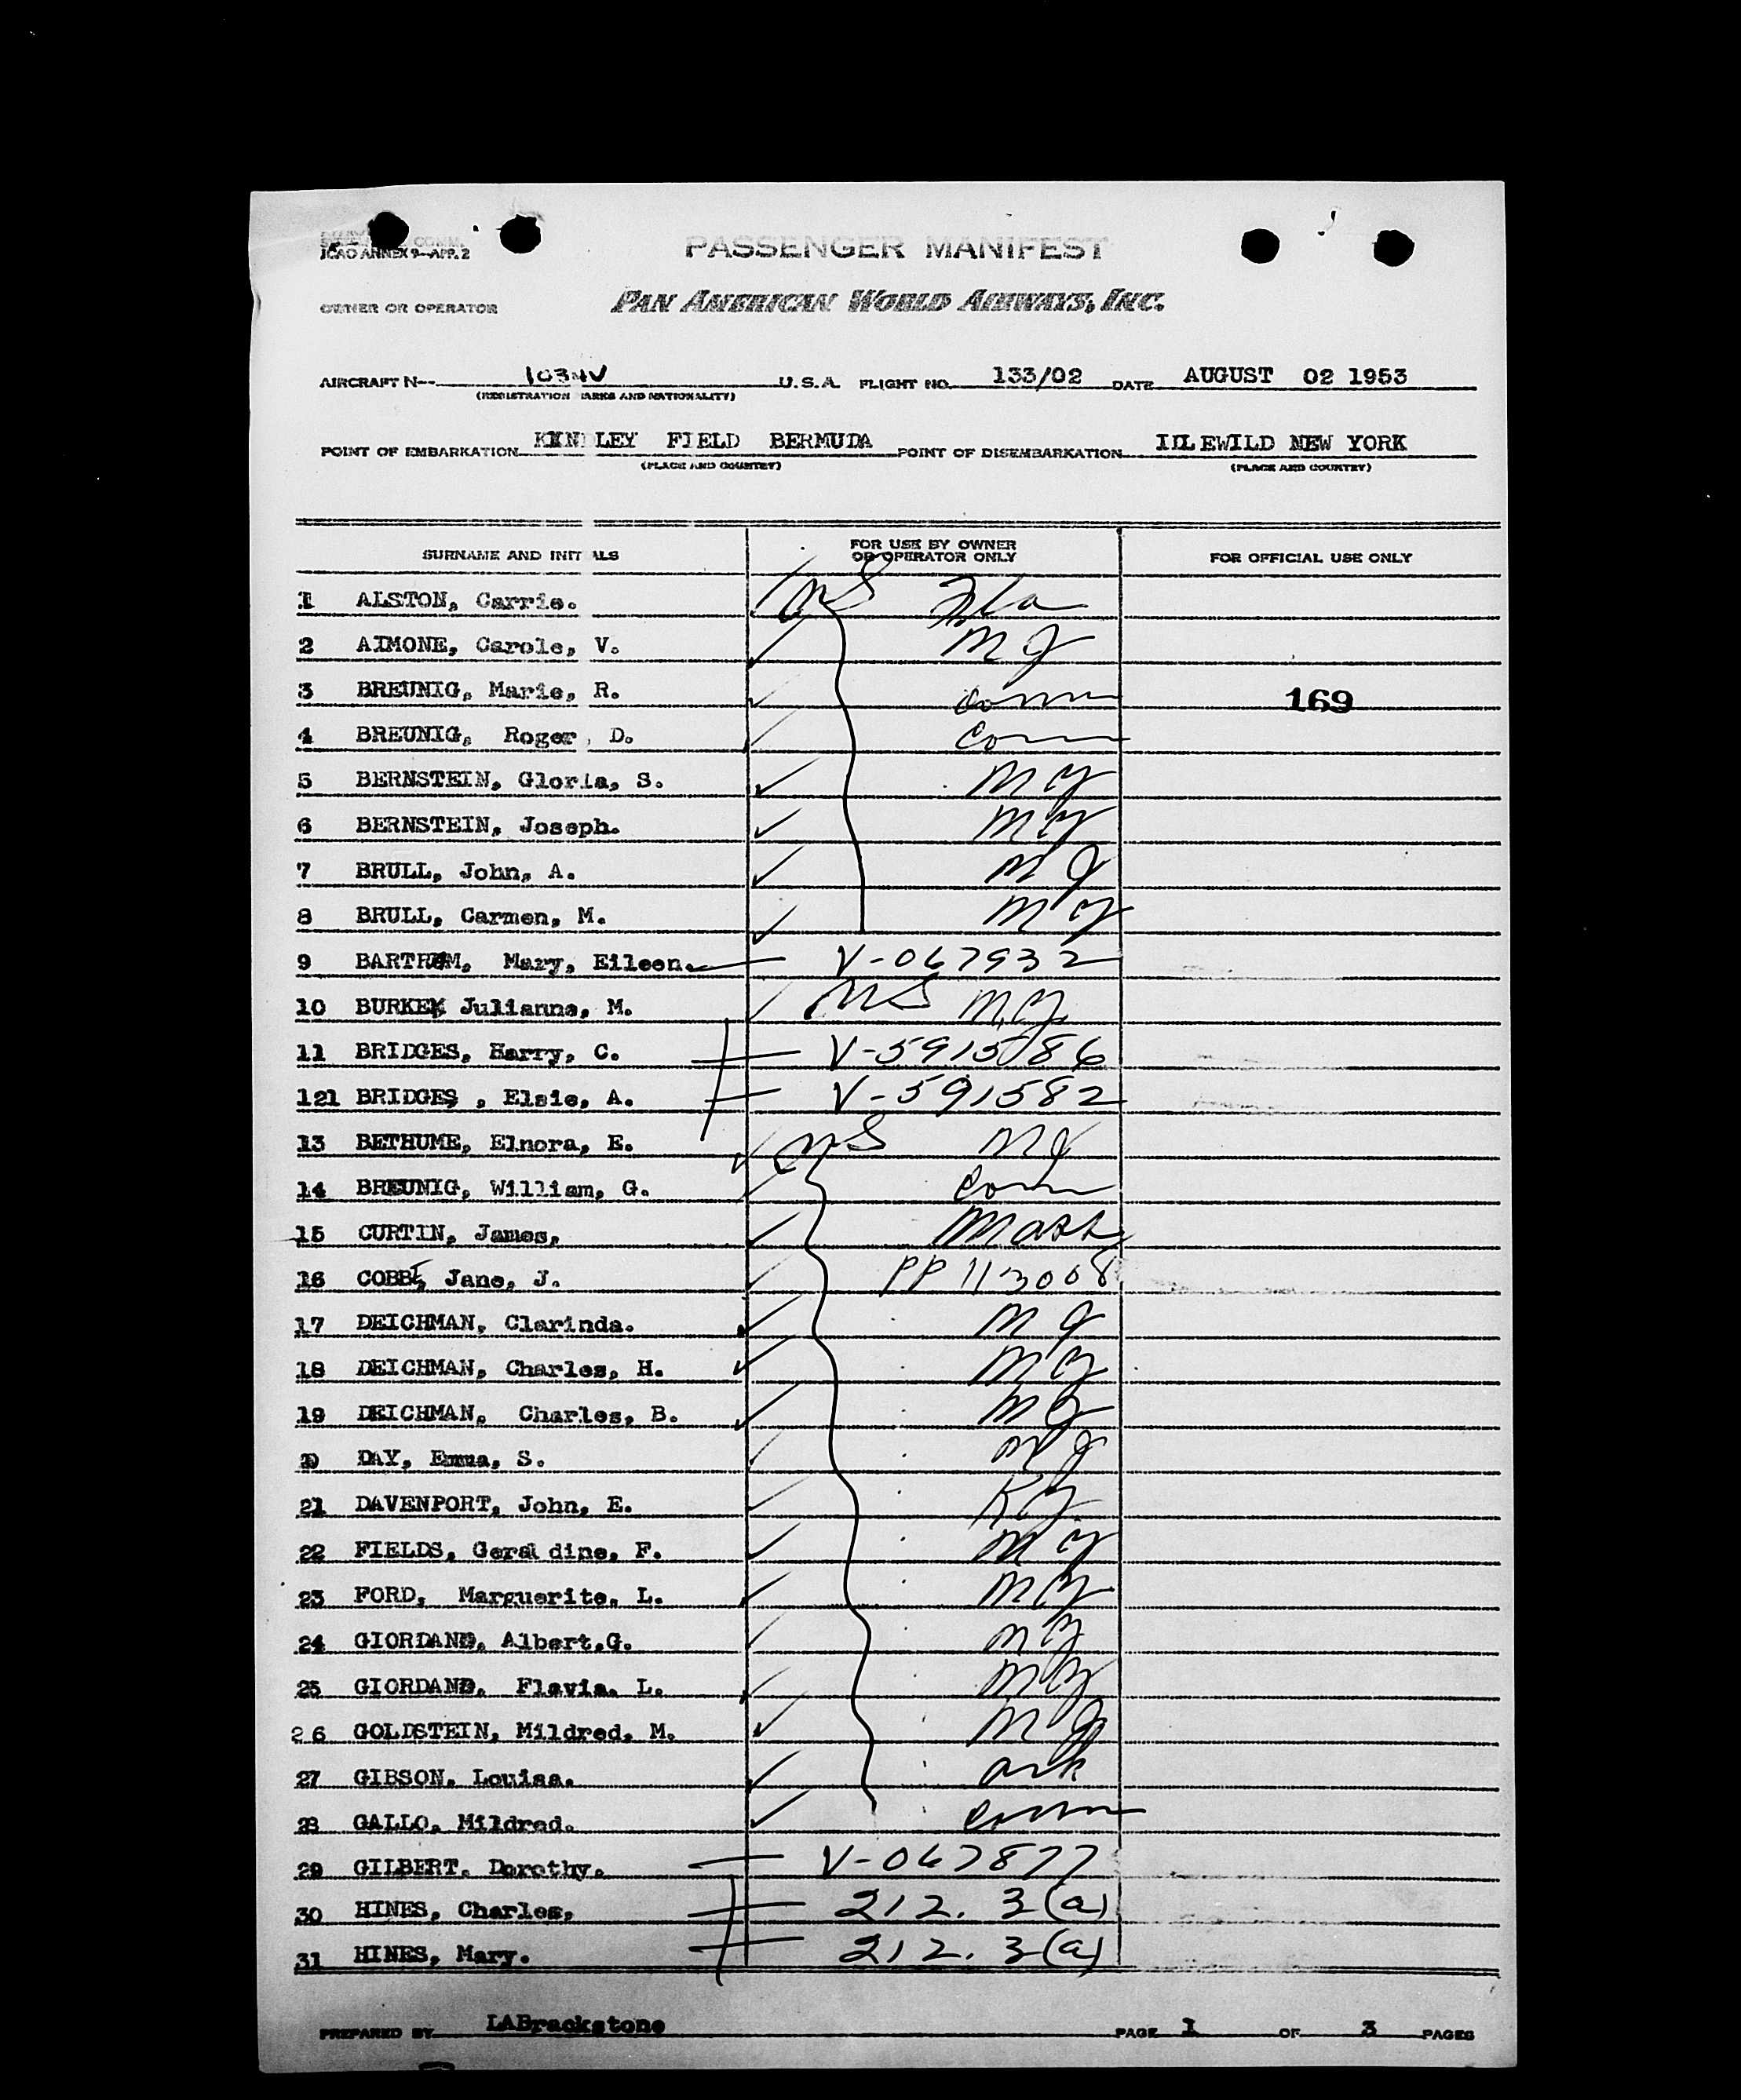 ICAO ANNEX 9—APP. 2
PASSENGER MANIFEST
OWNER OR OPERATOR PAN AMERICAN WORLD AIRWAYS, INC.
AIRCRAFT N-- 1034V U.S.A. FLIGHT NO. 133/02 DATE AUGUST 02 1953
(REGISTRATION MARKS AND NATIONALITY)
POINT OF EMBARKATION KINDLEY FIELD BERMUDA POINT OF DISEMBARKATION IDLEWILD NEW YORK
(PLACE AND COUNTRY) (PLACE AND COUNTRY)
SURNAME AND INITIALS FOR USE BY OWNER OR OPERATOR ONLY FOR OFFICIAL USE ONLY
1 ALSTON, Carrie. US Fla
2 AIMONE, Carole, V. NJ
3 BREUNIG, Marie, R. Conn 169
4 BREUNIG, Roger, D. Conn
5 BERNSTEIN, Gloria, S. NY
6 BERNSTEIN, Joseph. NY
7 BRULL, John, A. NY
8 BRULL, Carmen, M. NY
9 BARTRUM, Mary, Eileen. V-067932
10 BURKE, Julianne, M. US NY
11 BRIDGES, Harry, C. V-591586
121 BRIDGES, Elsie, A. V-591582
13 BETHUME, Elnora, E. US NY
14 BREUNIG, William, G. Conn
15 CURTIN, James, Mass
16 COBB, Jane, J. PP 113008
17 DEICHMAN, Clarinda. NY
18 DEICHMAN, Charles, H. NY
19 DEICHMAN, Charles, B. NY
20 DAY, Emma, S. NJ
21 DAVENPORT, John, E. Ky.
22 FIELDS, Geraldine, F. NY
23 FORD, Marguerite, L. NY
24 GIORDANO, Albert,G. NY
25 GIORDANO, Flavia, L. NY
26 GOLDSTEIN, Mildred, M. NY
27 GIBSON, Louisa. Ark
28 GALLO, Mildred. Conn
29 GILBERT, Dorothy. V-067877
30 HINES, Charles, 212. 3(a)
31 HINES, Mary. 212. 3(a)
PREPARED BY LABrackstone PAGE 1 OF 3 PAGES